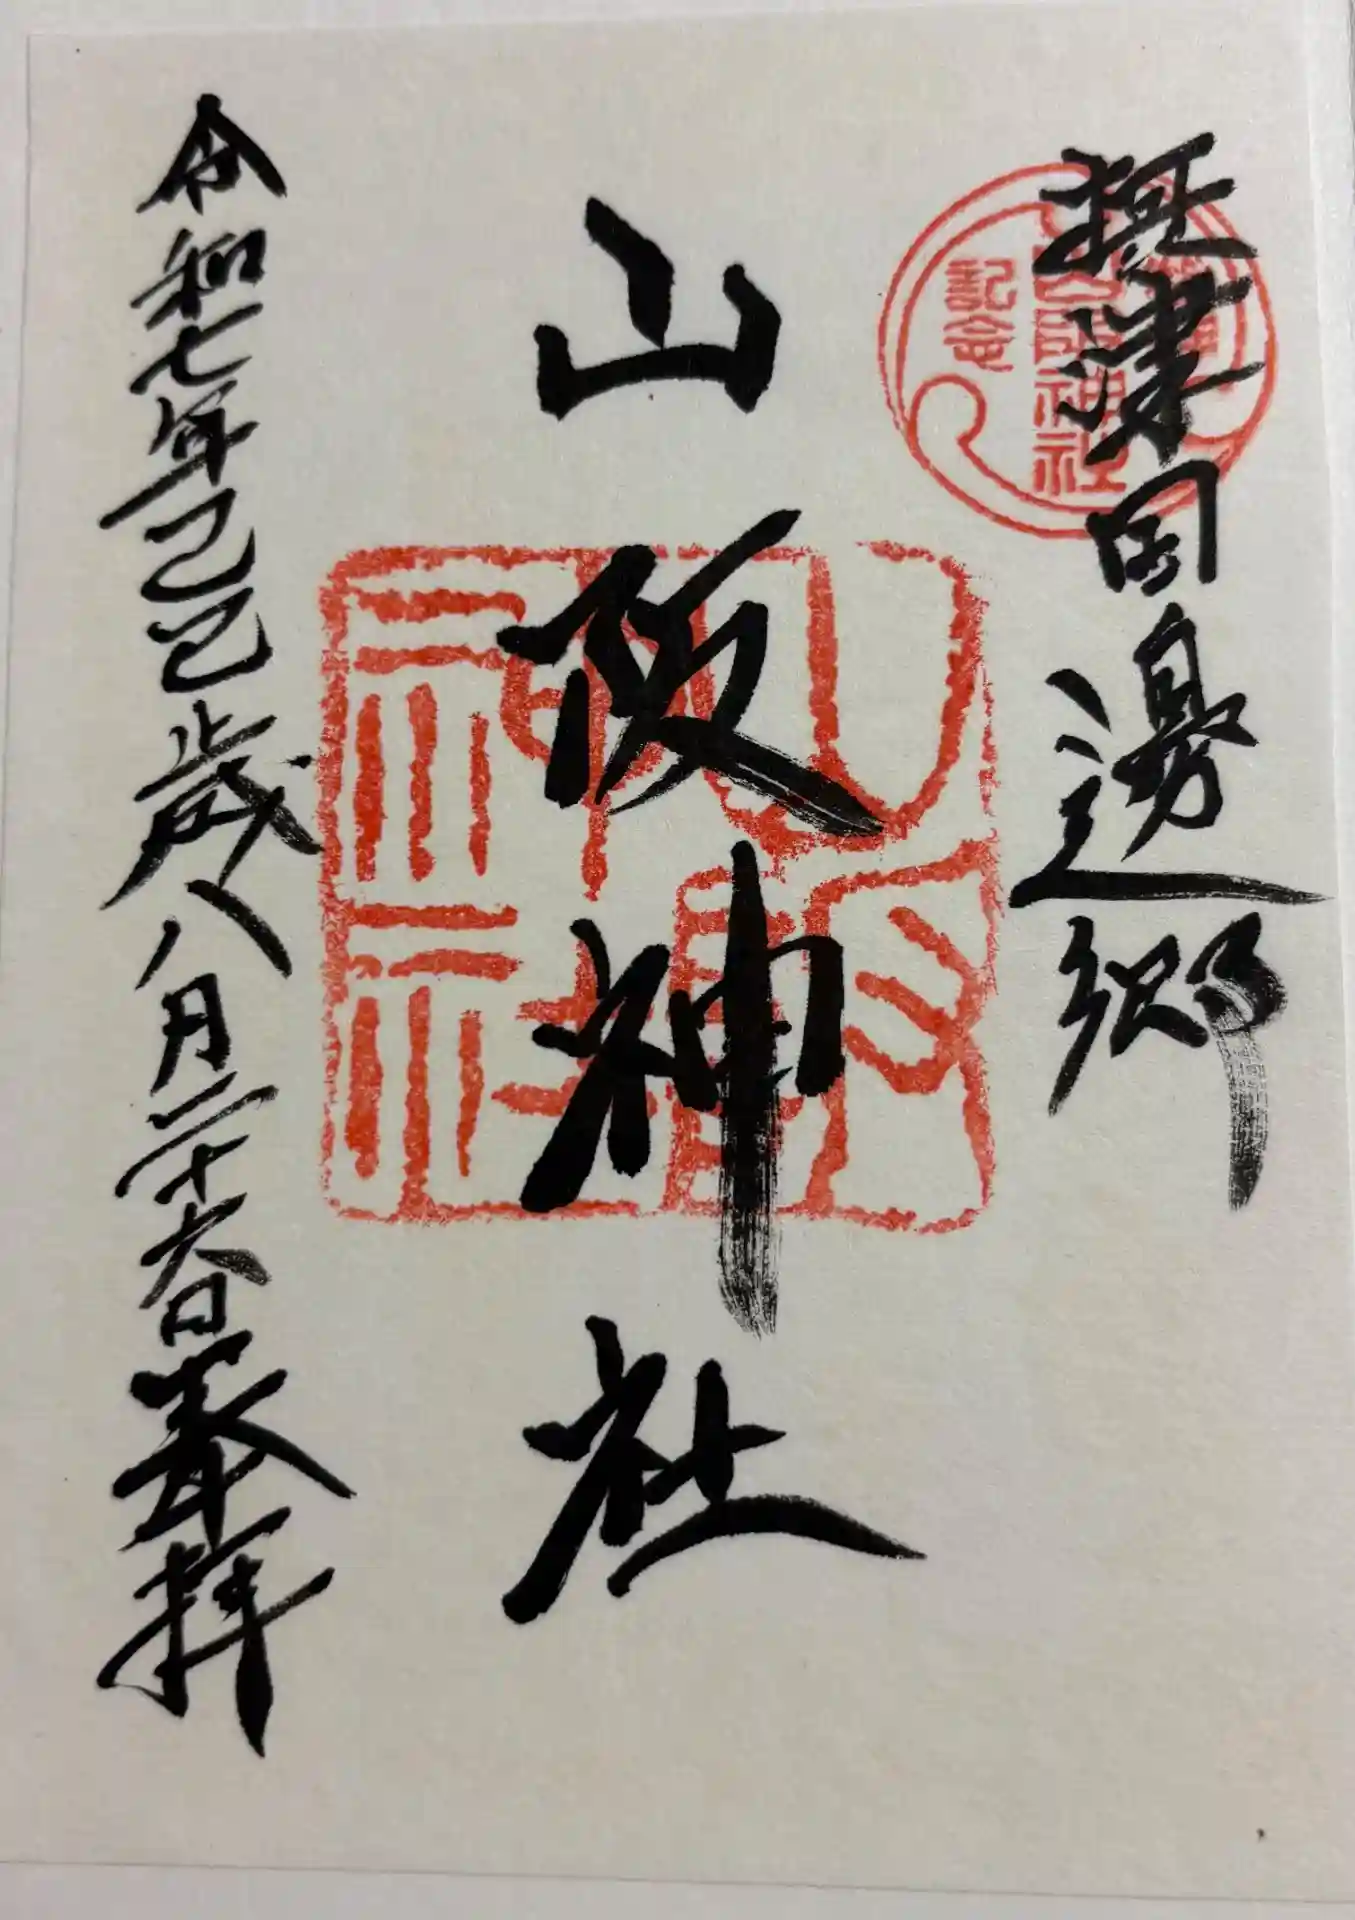 摂津国田邊郷
山阪神社
令和七年乙巳歳八月二十六日奉拝
山阪神社
記念